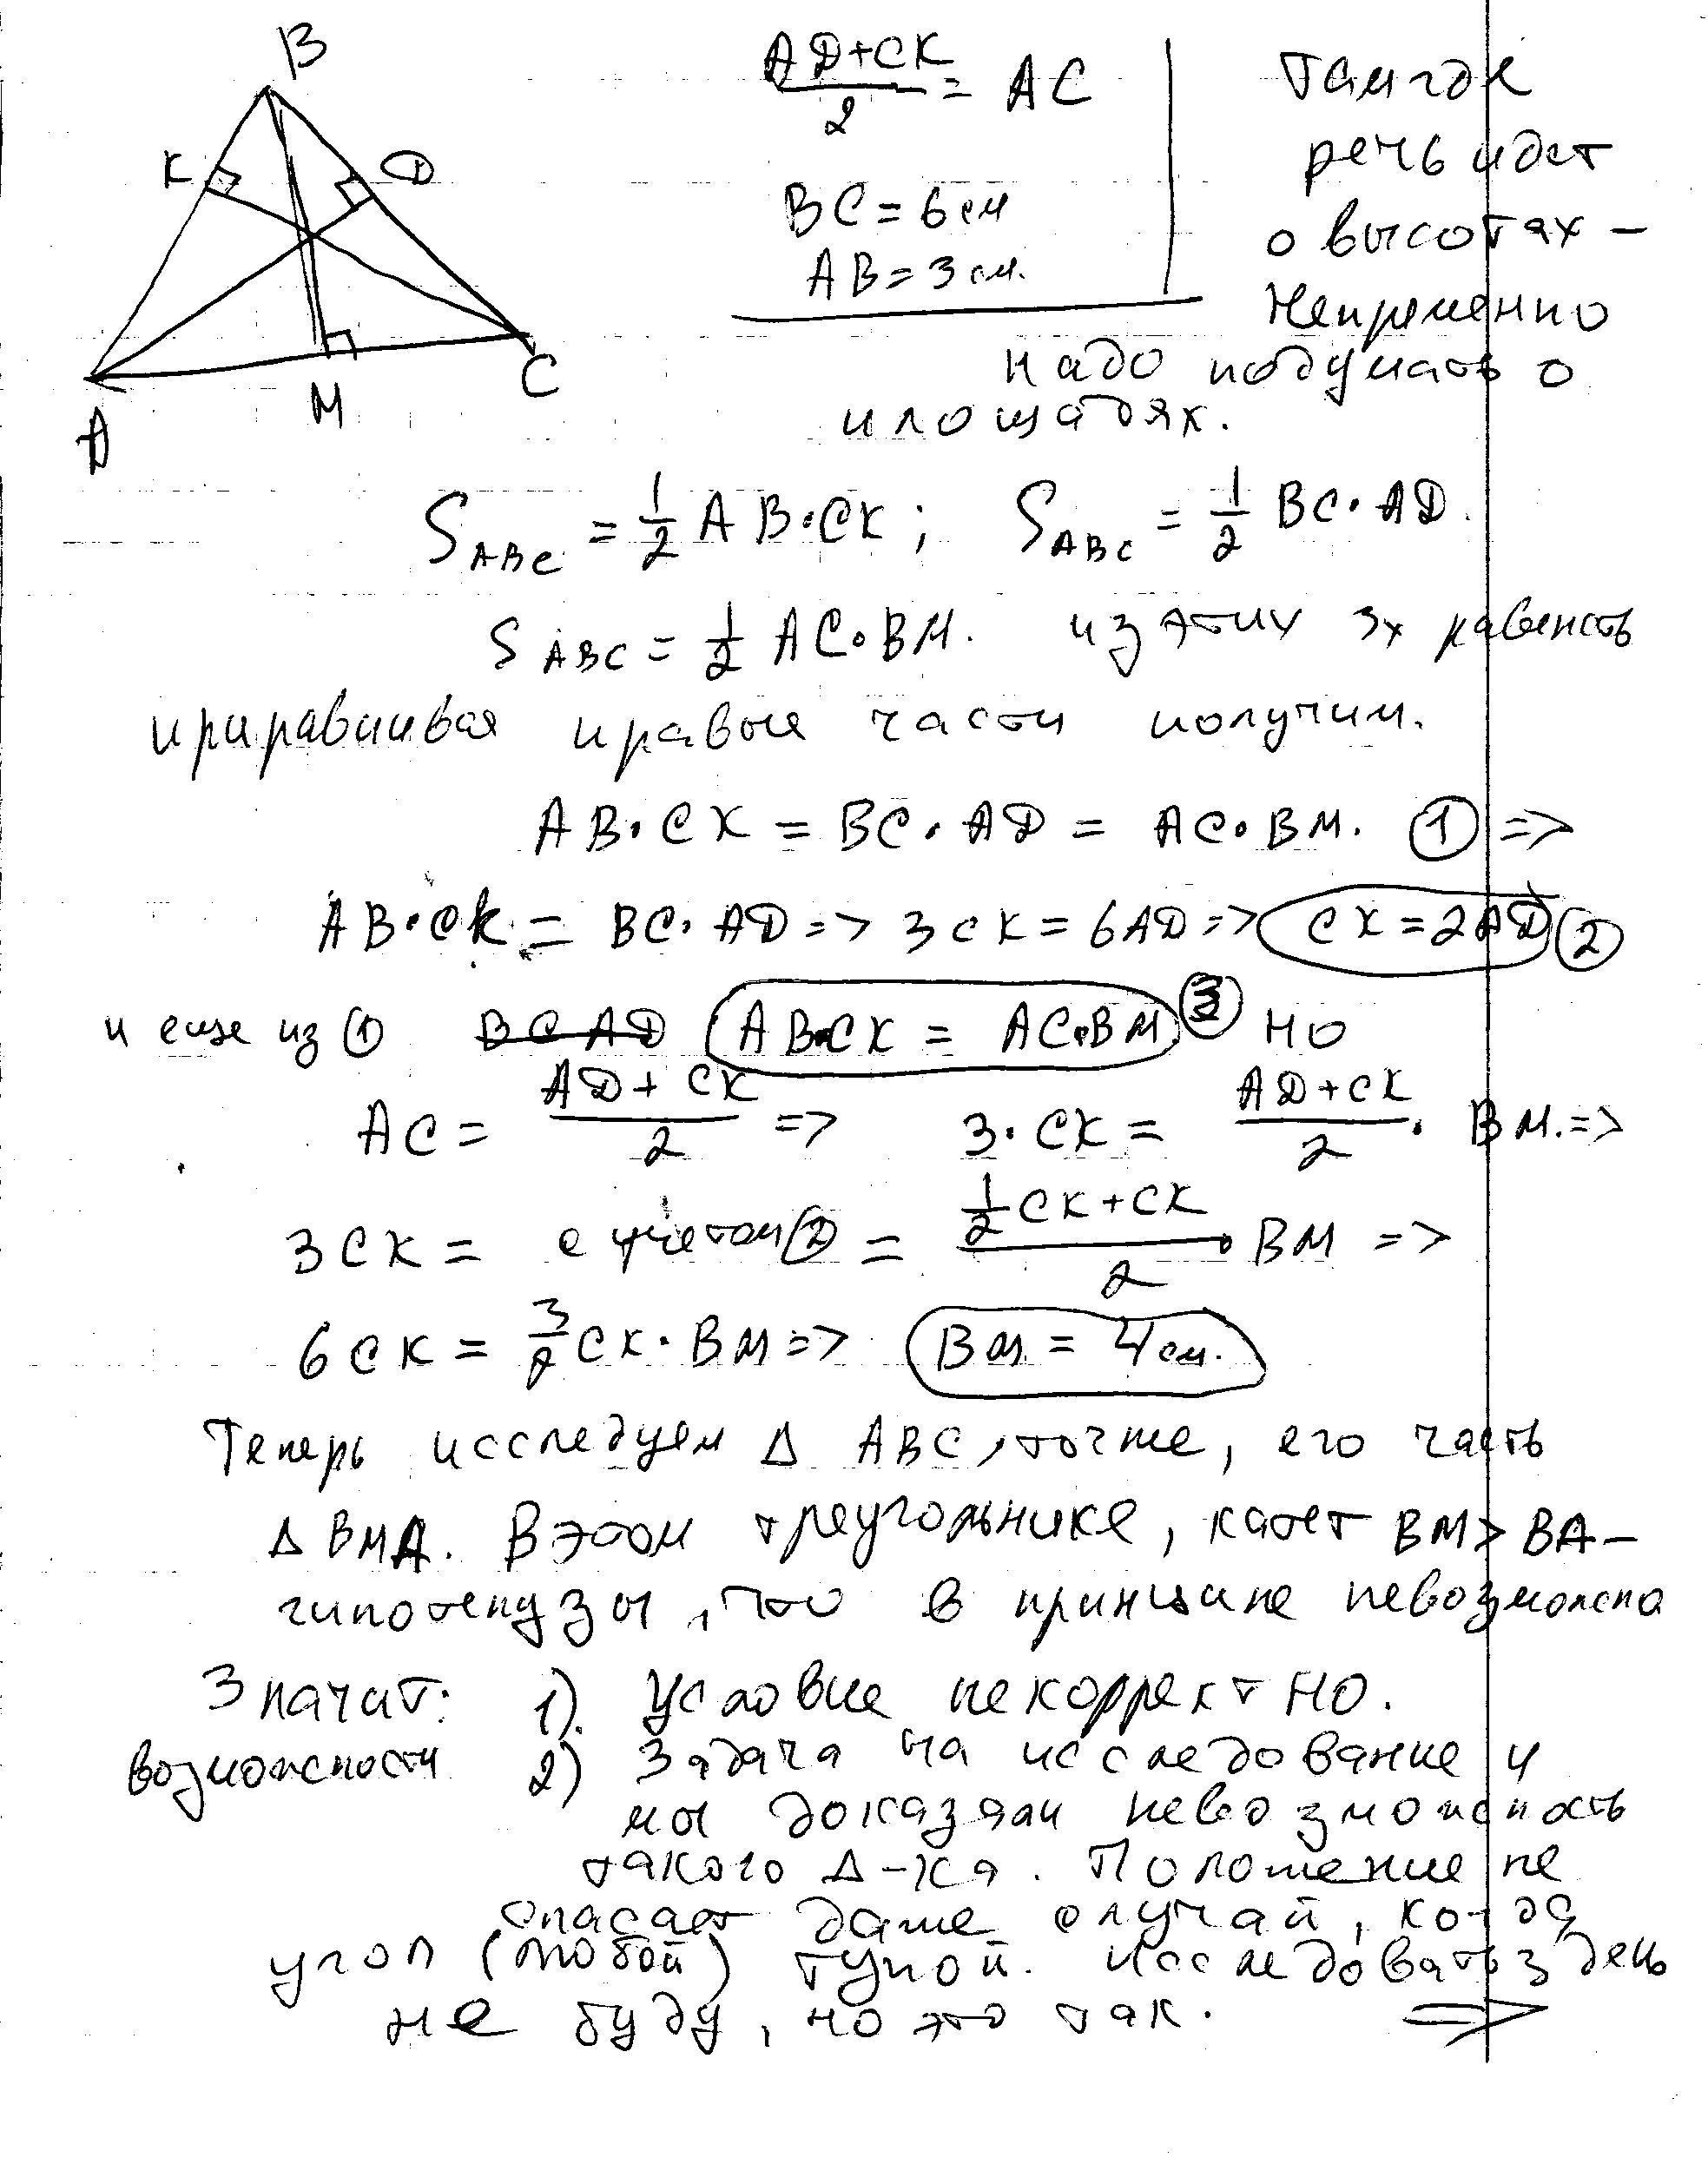 B
K
D
A
M
C
AD+CK / 2 = AC
BC = 6 см
AB = 3 см.
Там где
речь идет
о высотах –
непременно
надо подумать о
площадях.
S_ABC = 1/2 AB·CK ; S_ABC = 1/2 BC·AD.
S_ABC = 1/2 AC·BM. из этих 3х равенств
приравнивая правые части получим.
AB·CK = BC·AD = AC·BM. ① =>
AB·CK = BC·AD => 3CK = 6AD => CK = 2AD ②
и еще из ① BC AD AB·CK = AC·BM ③ но
AC = AD+CK / 2 => 3·CK = AD+CK / 2 · BM. =>
3CK = с учетом ② = 1/2 CK+CK / 2 · BM =>
6CK = 3/2 CK·BM => BM = 4 см.
Теперь исследуем Δ ABC, точнее, его часть
Δ BMA. В этом треугольнике, катет BM > BA –
гипотенузы, что в принципе невозможно
Значит: 1). Условие некорректно.
возможности 2) Задача на исследование и
мы доказали невозможность
такого Δ-ка. Положение не
спасает даже случай, когда
угол (любой) тупой. Исследовать здесь
не буду, но это так. =>